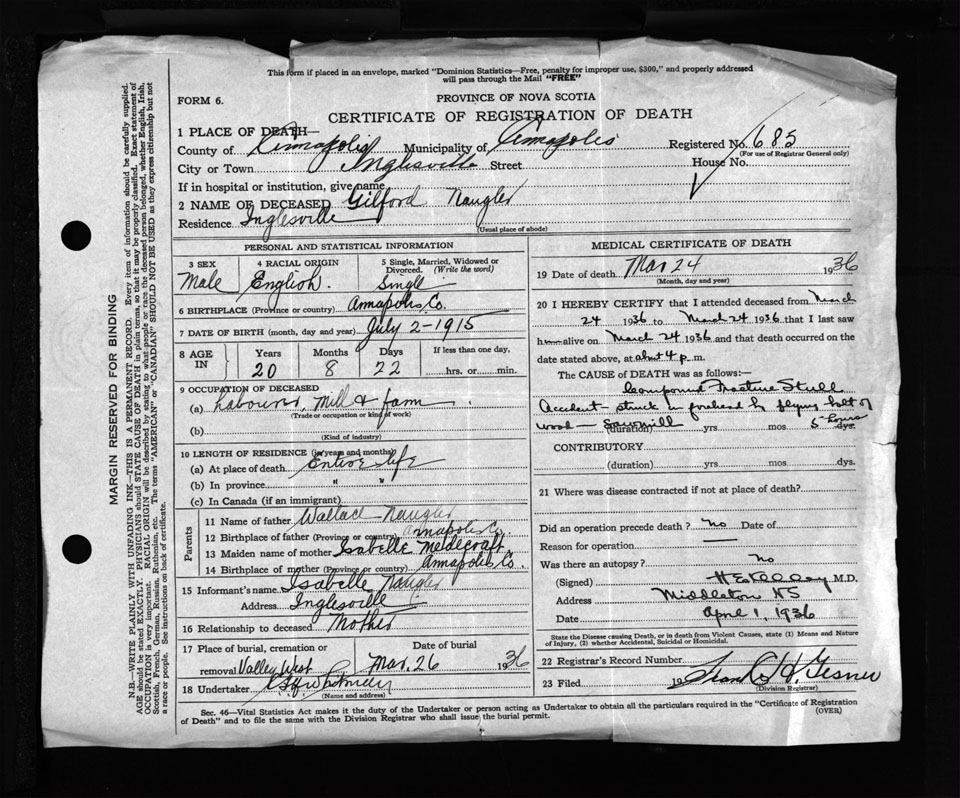 This form if placed in an envelope, marked "Dominion Statistics—Free, penalty for improper use, $300," and properly addressed
will pass through the Mail "FREE"
FORM 6.
PROVINCE OF NOVA SCOTIA
CERTIFICATE OF REGISTRATION OF DEATH
1 PLACE OF DEATH—
County of Annapolis Municipality of Annapolis Registered No. 685
(For use of Registrar General only)
City or Town Inglesville Street House No.
If in hospital or institution, give name
2 NAME OF DECEASED Gilford Naugler
Residence Inglesville
(Usual place of abode)
MARGIN RESERVED FOR BINDING
N.B.—WRITE PLAINLY WITH UNFADING INK—THIS IS A PERMANENT RECORD. Every item of information should be carefully supplied.
AGE should be stated EXACTLY. PHYSICIANS should STATE CAUSE OF DEATH in plain terms, so that it may be properly classified. Exact statement of
OCCUPATION is very important. RACIAL ORIGIN will be described by stating to what people or race the deceased person belonged, whether English, Irish,
Scottish, French, German, Russian, Ruthenian, etc. The terms "AMERICAN" or "CANADIAN" SHOULD NOT BE USED as they express citizenship but not
a race or people. See instructions on back of certificate.
PERSONAL AND STATISTICAL INFORMATION
3 SEX
Male
4 RACIAL ORIGIN
English.
5 Single, Married, Widowed or
Divorced. (Write the word)
Single
6 BIRTHPLACE (Province or country) Annapolis Co.
7 DATE OF BIRTH (month, day and year) July 2-1915
8 AGE IN
Years Months Days If less than one day,
20 8 22 hrs. or min.
9 OCCUPATION OF DECEASED
(a) Labourer, Mill & farm
(Trade or occupation or kind of work)
(b)
(Kind of industry)
10 LENGTH OF RESIDENCE (in years and months)
(a) At place of death Entire life
(b) In province " "
(c) In Canada (if an immigrant)
Parents
11 Name of father Wallace Naugler
12 Birthplace of father (Province or country) Annapolis Co.
13 Maiden name of mother Isabelle
14 Birthplace of mother (Province or country) Annapolis Co.
15 Informant's name Isabelle Naugler
Address Inglesville
16 Relationship to deceased Mother
17 Place of burial, cremation or Date of burial
removal Valley West Mar. 26 1936
18 Undertaker Whitman
(Name and address)
MEDICAL CERTIFICATE OF DEATH
19 Date of death Mar 24 1936
(Month, day and year)
20 I HEREBY CERTIFY that I attended deceased from March
24 1936 to March 24 1936 that I last saw
h alive on March 24 1936 and that death occurred on the
date stated above, at about 4 p. m.
The CAUSE of DEATH was as follows:—
Compound Fracture Skull
Accident— struck in forehead by flying bolt of
wood — Sawmill (duration) yrs mos 5 hours dys.
CONTRIBUTORY
(duration) yrs mos. dys.
21 Where was disease contracted if not at place of death?
Did an operation precede death? no Date of
Reason for operation —
Was there an autopsy? no
(Signed) M.D.
Address Middleton NS
Date April 1, 1936
State the Disease causing Death, or in death from Violent Causes, state (1) Means and Nature
of Injury, (2) whether Accidental, Suicidal or Homicidal.
22 Registrar's Record Number
23 Filed 19 Gesner
(Division Registrar)
Sec. 46—Vital Statistics Act makes it the duty of the Undertaker or person acting as Undertaker to obtain all the particulars required in the "Certificate of Registration
of Death" and to file the same with the Division Registrar who shall issue the burial permit. (OVER)